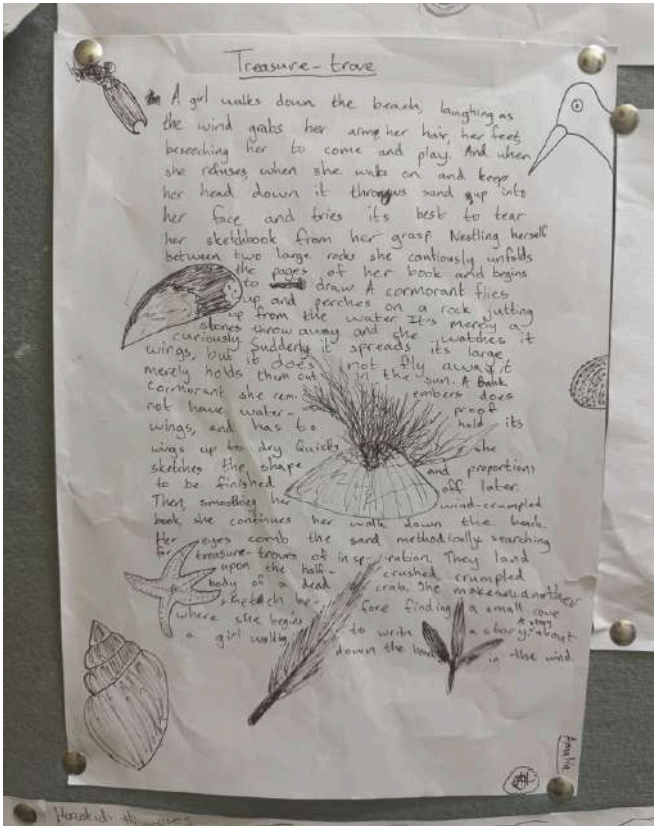 Treasure-trove
A girl walks down the beach, laughing as
the wind grabs her arms, her hair, her feet,
beseeching her to come and play. And when
she refuses, when she walks on and keeps
her head down it throws sand up into
her face and tries its best to tear
her sketchbook from her grasp. Nestling herself
between two large rocks she cautiously unfolds
the pages of her book and begins
to draw. A cormorant flies
up and perches on a rock jutting
up from the water. It's merely a
stones throw away and she watches it
curiously. Suddenly it spreads its large
wings, but it does not fly away, it
merely holds them out in the sun. A
Cormorant she rem- embers does
not have water- proof
wings, and has to hold its
wings up to dry. Quickly she
sketches the shape and proportions
to be finished off later.
Then, smoothing her wind-crumpled
book, she continues her walk down the beach.
Her eyes comb the sand methodically searching
for treasure-trouvs of inspiration. They land
upon the half- crushed crumpled
body of a dead crab. She makes another
sketch be- fore finding a small cove
where she begins to write a story. A story about
a girl walking down the beach in the wind.
Amelia